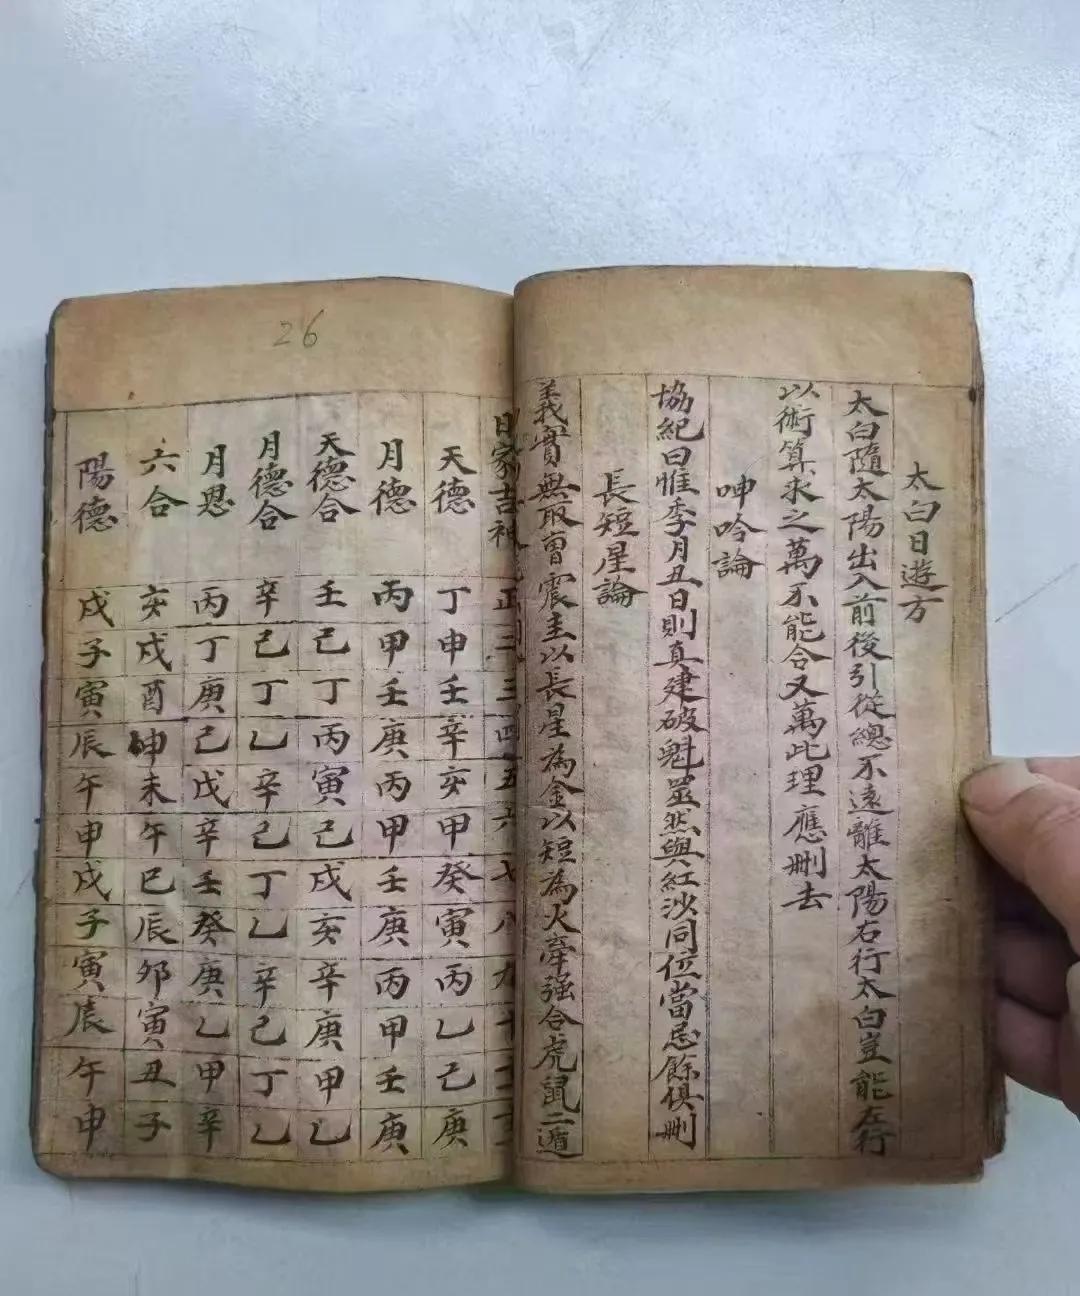 太白日遊方
太白隨太陽出入前後引從總不遠離太陽右行太白豈能左行
以術算求之萬不能合又萬此理應刪去
呻吟論
協紀曰惟季月丑日則真建破魁罡然與紅沙同位當忌餘俱刪
長短星論
義實無取曹震圭以長星為金以短為火牽強合虎鼠二遁
26
日家吉神 正 二 三 四 五 六 七 八 九 十
天德 丁 申 壬 辛 亥 甲 癸 寅 丙 乙 己 庚
月德 丙 甲 壬 庚 丙 甲 壬 庚 丙 甲 壬 庚
天德合 壬 己 丁 丙 寅 己 戌 亥 辛 庚 甲 乙
月德合 辛 己 丁 乙 辛 己 丁 乙 辛 己 丁 乙
月恩 丙 丁 庚 己 戊 辛 壬 癸 庚 乙 甲 辛
六合 亥 戌 酉 申 未 午 巳 辰 卯 寅 丑 子
陽德 戌 子 寅 辰 午 申 戌 子 寅 辰 午 申